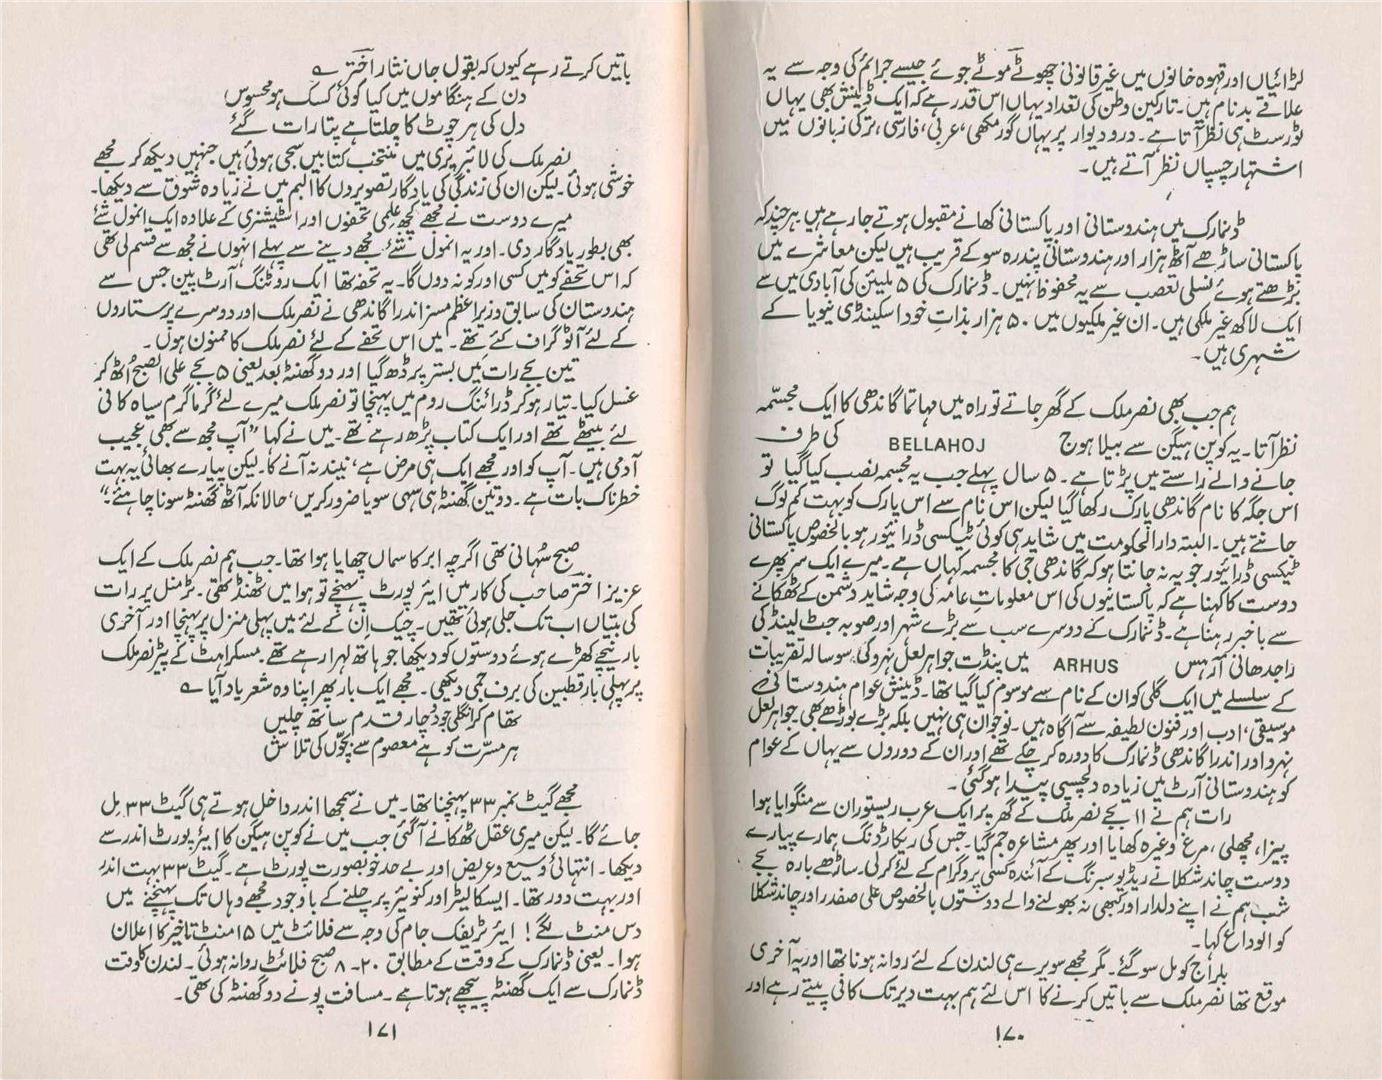 لڑائیاں اور قہوہ خانوں میں غیر قانونی چھوٹے موٹے جوئے جیسے جرائم کی وجہ سے یہ
علاقے بدنام ہیں۔ تارکین وطن کی تعداد یہاں اس قدر ہے کہ ایک ڈینش بھی یہاں
ٹورسٹ ہی نظر آتا ہے۔ در و دیوار پر یہاں گورمکھی، عربی، فارسی، ترکی زبانوں میں
اشتہار چسپاں نظر آتے ہیں۔
ڈنمارک میں ہندوستانی اور پاکستانی کھانے مقبول ہوتے جا رہے ہیں ہر چند کہ
پاکستانی ساڑھے آٹھ ہزار اور ہندوستانی پندرہ سو کے قریب ہیں لیکن معاشرے میں
بڑھتے ہوئے نسلی تعصب سے یہ محفوظ نہیں۔ ڈنمارک کی ۵ ملیئن کی آبادی میں سے
ایک لاکھ غیر ملکی ہیں۔ ان غیر ملکیوں میں ۵۰ ہزار بذاتِ خود اسکینڈی نیویا کے
شہری ہیں۔
ہم جب بھی نصر ملک کے گھر جاتے تو راہ میں مہاتما گاندھی کا ایک مجسّمہ
نظر آتا۔ یہ کوپن ہیگن سے بیلا ہوج BELLAHOJ کی طرف
جانے والے راستے میں پڑتا ہے۔ ۵ سال پہلے جب یہ مجسمہ نصب کیا گیا تو
اس جگہ کا نام گاندھی پارک رکھا گیا لیکن اس نام سے اس پارک کو بہت کم لوگ
جانتے ہیں۔ البتہ دارالحکومت میں شاید ہی کوئی ٹیکسی ڈرائیور ہو بالخصوص پاکستانی
ٹیکسی ڈرائیور جو یہ نہ جانتا ہو کہ گاندھی جی کا مجسمہ کہاں ہے۔ میرے ایک سر پھرے
دوست کا کہنا ہے کہ پاکستانیوں کی اس معلوماتِ عامہ کی وجہ شاید دشمن کے ٹھکانے
سے باخبر رہنا ہے۔ ڈنمارک کے دوسرے سب سے بڑے شہر اور صوبہ جٹ لینڈ کی
راجدھانی آرہس ARHUS میں پنڈت جواہر لعل نہرو کی سو سالہ تقریبات
کے سلسلے میں ایک گلی کو ان کے نام سے موسوم کیا گیا تھا۔ ڈینش عوام ہندوستانی
موسیقی، ادب اور فنون لطیفہ سے آگاہ ہیں۔ نوجوان ہی نہیں بلکہ بڑے بوڑھے بھی جواہر لعل
نہرو اور اندرا گاندھی ڈنمارک کا دورہ کر چکے تھے اور ان کے دوروں سے یہاں کے عوام
کو ہندوستانی آرٹ میں زیادہ دلچسپی پیدا ہو گئی۔
رات ہم نے ۱۱ بجے نصر ملک کے گھر پر ایک عرب ریستوران سے منگوایا ہوا
پیزا، مچھلی، مرغ وغیرہ کھایا اور پھر مشاعرہ جم گیا۔ جس کی ریکارڈنگ ہمارے پیارے
دوست چاند شکلا نے ریڈیو سبرنگ کے آئندہ کسی پروگرام کے لئے کر لی۔ ساڑھے بارہ بجے
شب ہم نے اپنے دلدار اور کبھی نہ بھولنے والے دوستوں بالخصوص علی صفدر اور چاند شکلا
کو الوداع کہا۔
بلراج کومل سو گئے۔ مگر مجھے سویرے ہی لندن کے لئے روانہ ہونا تھا اور یہ آخری
موقع تھا نصر ملک سے باتیں کرنے کا اس لئے ہم بہت دیر تک کافی پیتے رہے اور
۱۷۰
باتیں کرتے رہے کیوں کہ بقول جاں نثار اختر ؎
دن کے ہنگاموں میں کیا کوئی کسک ہو محسوس
دل کی ہر چوٹ کا چلتا ہے پتا رات گئے
نصر ملک کی لائبریری میں منتخب کتابیں سجی ہوئی ہیں جنہیں دیکھ کر مجھے
خوشی ہوئی۔ لیکن ان کی زندگی کی یادگار تصویروں کا البم میں نے زیادہ شوق سے دیکھا۔
میرے دوست نے مجھے کچھ علمی تحفوں اور اسٹیشنری کے علاوہ ایک انمول شئے
بھی بطور یادگار دی۔ اور یہ انمول شئے مجھے دینے سے پہلے انہوں نے مجھ سے قسم لی تھی
کہ اس تحفے کو میں کسی اور کو نہ دوں گا۔ یہ تحفہ تھا ایک روٹنگ آرٹ پین جس سے
ہندوستان کی سابق وزیر اعظم مسز اندرا گاندھی نے نصر ملک اور دوسرے پرستاروں
کے لئے آٹو گراف کئے تھے۔ میں اس تحفے کے لئے نصر ملک کا ممنون ہوں۔
تین بجے رات میں بستر پر ڈھ گیا اور دو گھنٹہ بعد یعنی ۵ بجے علی الصبح اٹھ کر
غسل کیا۔ تیار ہو کر ڈرائنگ روم میں پہنچا تو نصر ملک میرے لئے گرما گرم سیاہ کافی
لئے بیٹھے تھے اور ایک کتاب پڑھ رہے تھے۔ میں نے کہا "آپ مجھ سے بھی عجیب
آدمی ہیں۔ آپ کو اور مجھے ایک ہی مرض ہے، نیند نہ آنے کا۔ لیکن پیارے بھائی یہ بہت
خطرناک بات ہے۔ دو تین گھنٹہ ہی سہی سویا ضرور کریں، حالانکہ آٹھ گھنٹہ سونا چاہئے"۔
صبح سُہانی تھی اگرچہ ابر کا سماں چھایا ہوا تھا۔ جب ہم نصر ملک کے ایک
عزیز اختر صاحب کی کار میں ایئر پورٹ پہنچے تو ہوا میں ٹھنڈ تھی۔ ٹرمنل پر رات
کی بتیاں اب تک جلی ہوئی تھیں۔ چیک اِن کے لئے میں پہلی منزل پر پہنچا اور آخری
بار نیچے کھڑے ہوئے دوستوں کو دیکھا جو ہاتھ لہرا رہے تھے۔ مسکراہٹ کے پیڑ نصر ملک
پر پہلی بار قطبین کی برف جمی دیکھی۔ مجھے ایک بار پھر اپنا وہ شعر یاد آیا ؎
تھام کر انگلی جو دو چار قدم ساتھ چلیں
ہر مسرّت کو ہے معصوم سے بچّوں کی تلاش
مجھے گیٹ نمبر ۳۳ پہنچنا تھا۔ میں نے سمجھا اندر داخل ہوتے ہی گیٹ ۳۳ مل
جائے گا۔ لیکن میری عقل ٹھکانے آ گئی جب میں نے کوپن ہیگن کا ایئر پورٹ اندر سے
دیکھا۔ انتہائی وسیع و عریض اور بے حد خوبصورت پورٹ ہے۔ گیٹ ۳۳ بہت اندر
اور بہت دور تھا۔ ایسکالیٹر اور کنویئر پر چلنے کے باوجود مجھے وہاں تک پہنچنے میں
دس منٹ لگے! ایئر ٹریفک جام کی وجہ سے فلائٹ میں ۱۵ منٹ تاخیر کا اعلان
ہوا۔ یعنی ڈنمارک کے وقت کے مطابق ۲۰۔۸ صبح فلائٹ روانہ ہوئی۔ لندن کا وقت
ڈنمارک سے ایک گھنٹہ پیچھے ہوتا ہے۔ مسافت پونے دو گھنٹہ کی تھی۔
۱۷۱